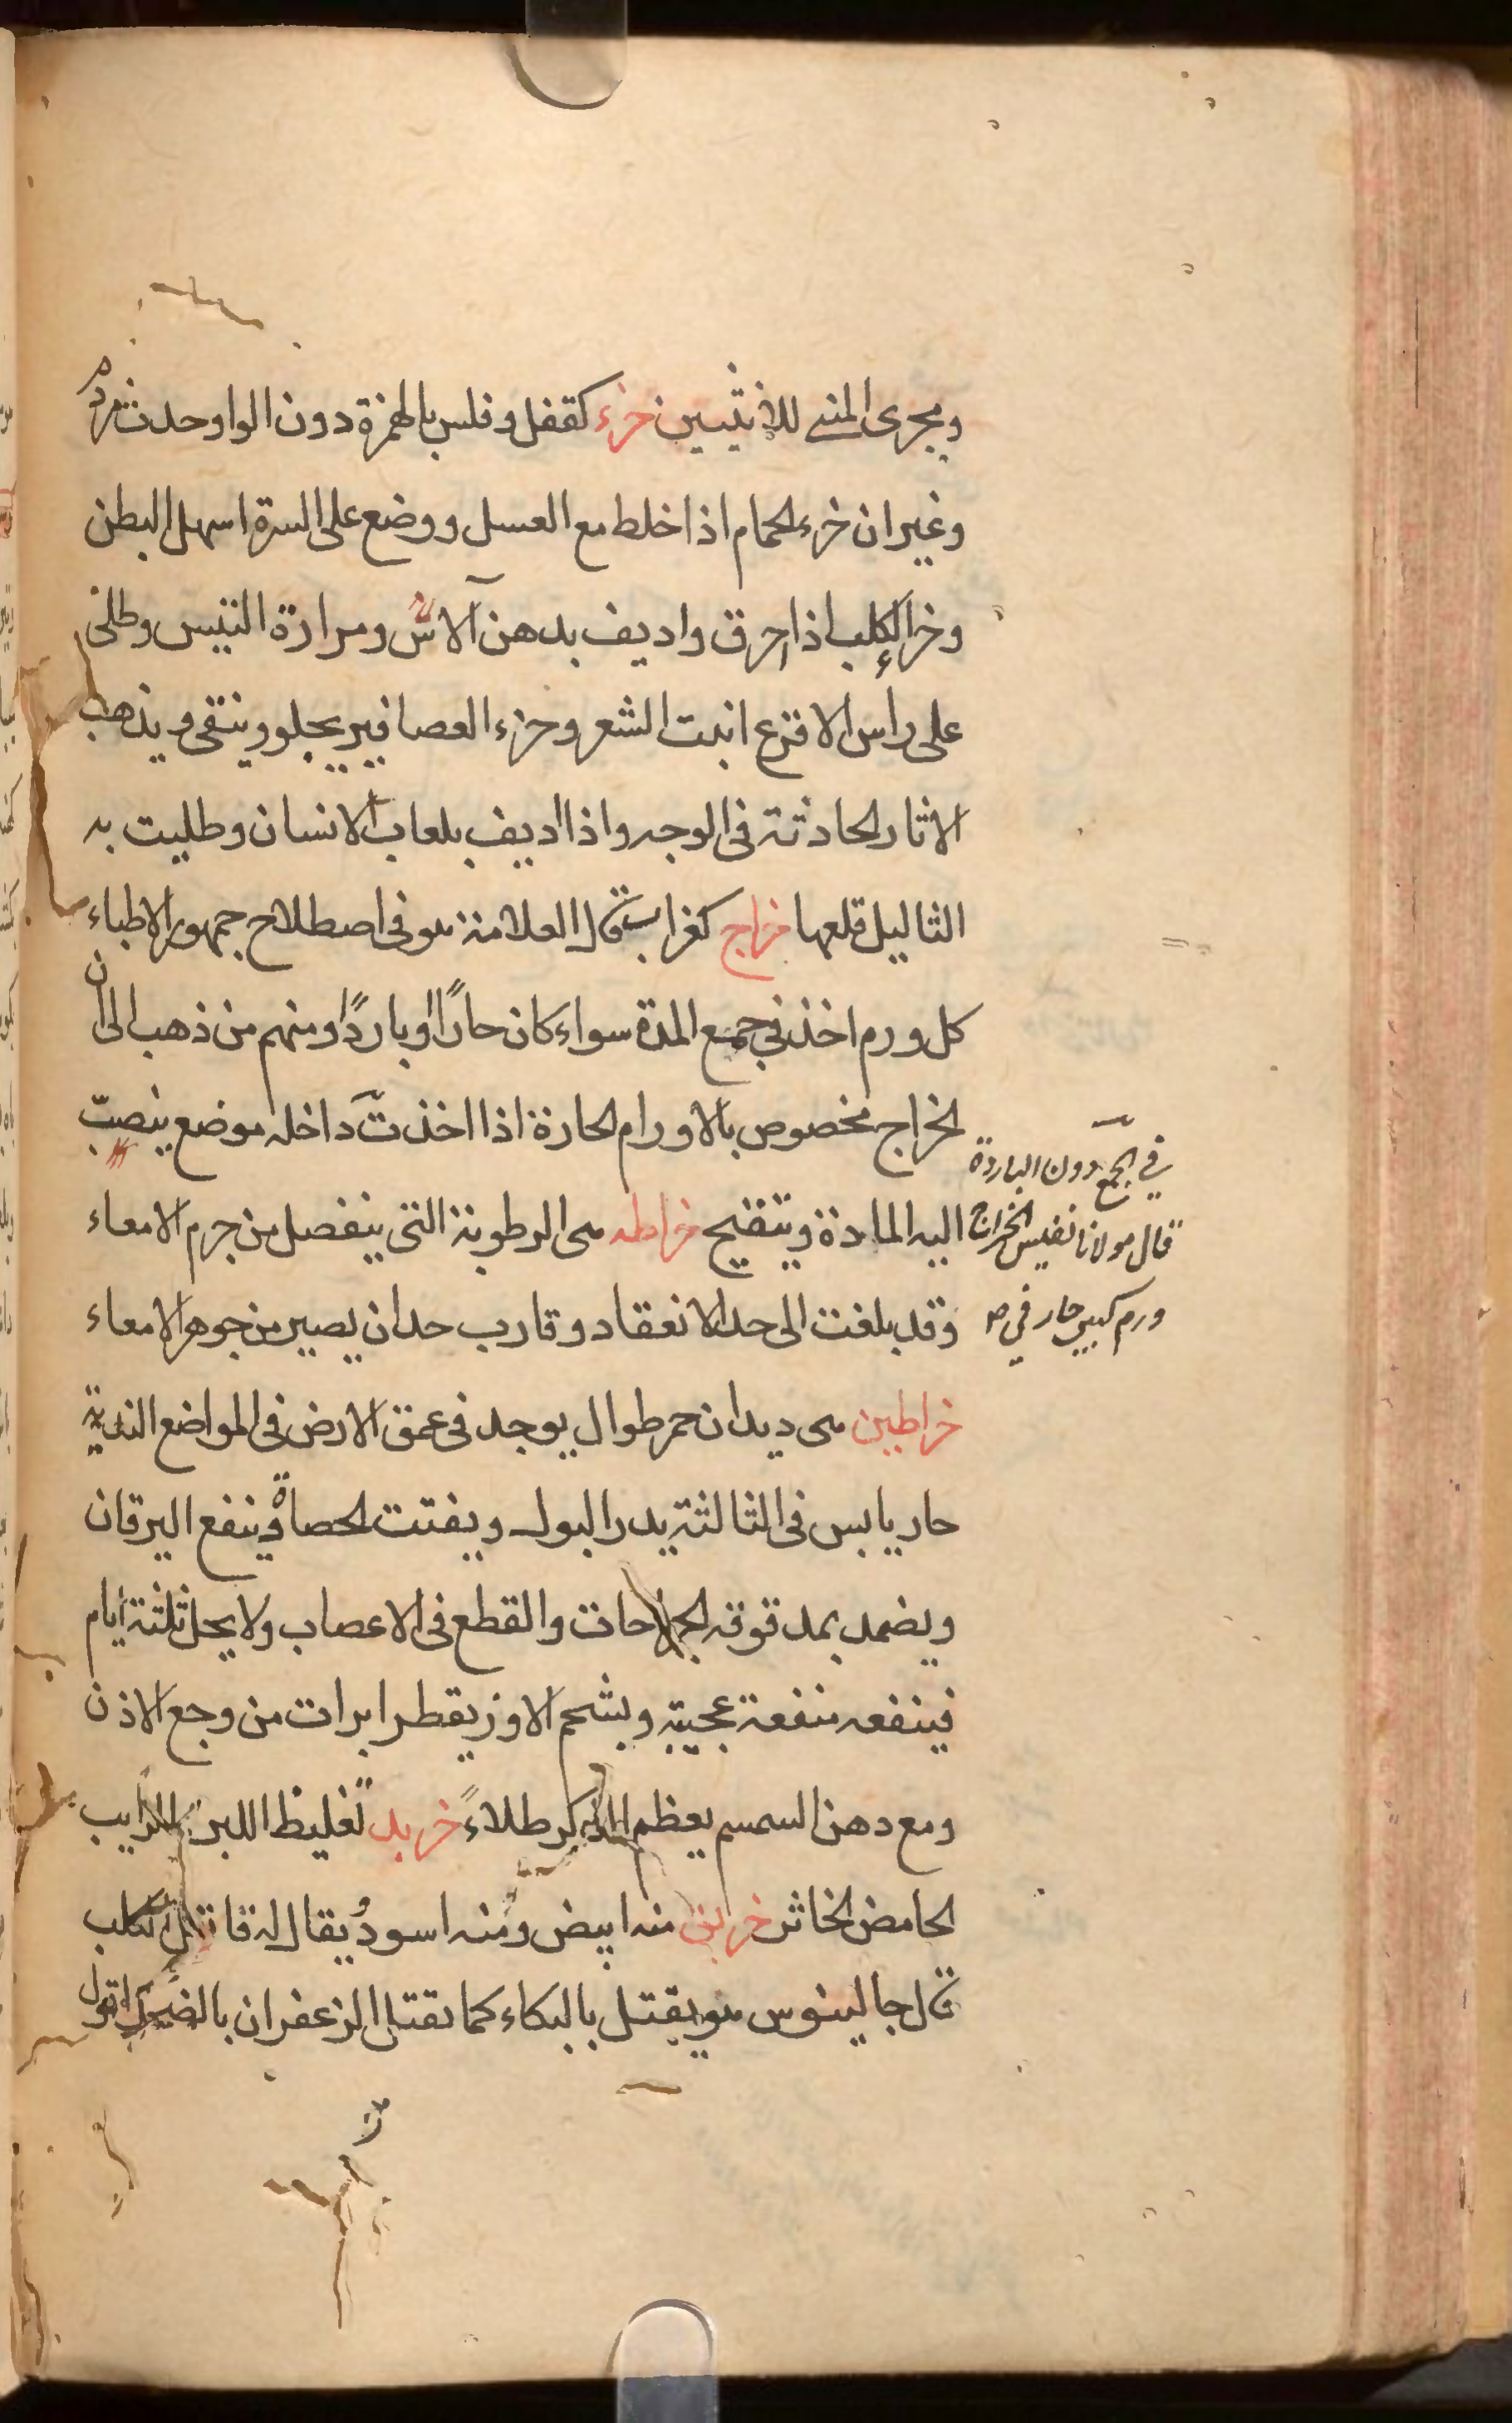 ومجرى المنى للانثيين خرء كقفل وفلس بالهمزة دون الواو حدث مرد
وغير ان خرء الحمام اذا خلط مع العسل ووضع على السرة اسهل البطن
وخرا الكلب اذا احرق واديف بدهن الآس ومرارة التيس وطلى
على راس الاقرع انبت الشعر وخرء العصافير يجلو وينقى ويذهب
الاثار الحادثة فى الوجه واذا اديف بلعاب الانسان وطليت به
الثاليل قلعها خراج كغراب قال العلامة هو فى اصطلاح جمهور الاطباء
كل ورم اخذ فى جمع المدة سواء كان حارًا او باردًا ومنهم من ذهب الى ان
الخراج مخصوص بالاورام الحارة اذا اخذت داخله موضع ينصبّ
فى الجمع دون الباردة
اليه المادة ويتقيح خراطه هى الرطوبة التى ينفصل من جرم الامعاء
قال مولانا نفيس الخراج
وقد بلغت الى حد الانعقاد وقارب حد ان يصير من جوهر الامعاء
ورم كبير حار فى
خراطين هى ديدان حمر طوال يوجد فى عمق الارض فى المواضع الندية
حار يابس فى الثالثة يدر البول ويفتت الحصاة وينفع اليرقان
ويضمد بمدقوقه الجراحات والقطع فى الاعصاب ولا يحل ثلثة ايام
فينفعه منفعة عجيبة وبشحم الاوز يقطر ابرات من وجع الاذن
ومع دهن السمسم يعظم الذكر طلاءً خربد تغليظ اللبن الرايب
الحامض الخاثر خربق منه ابيض ومنه اسود يقال له قاتل الكلب
قال جالينوس هو يقتل بالبكاء كما يقتل الزعفران بالضحك اقول